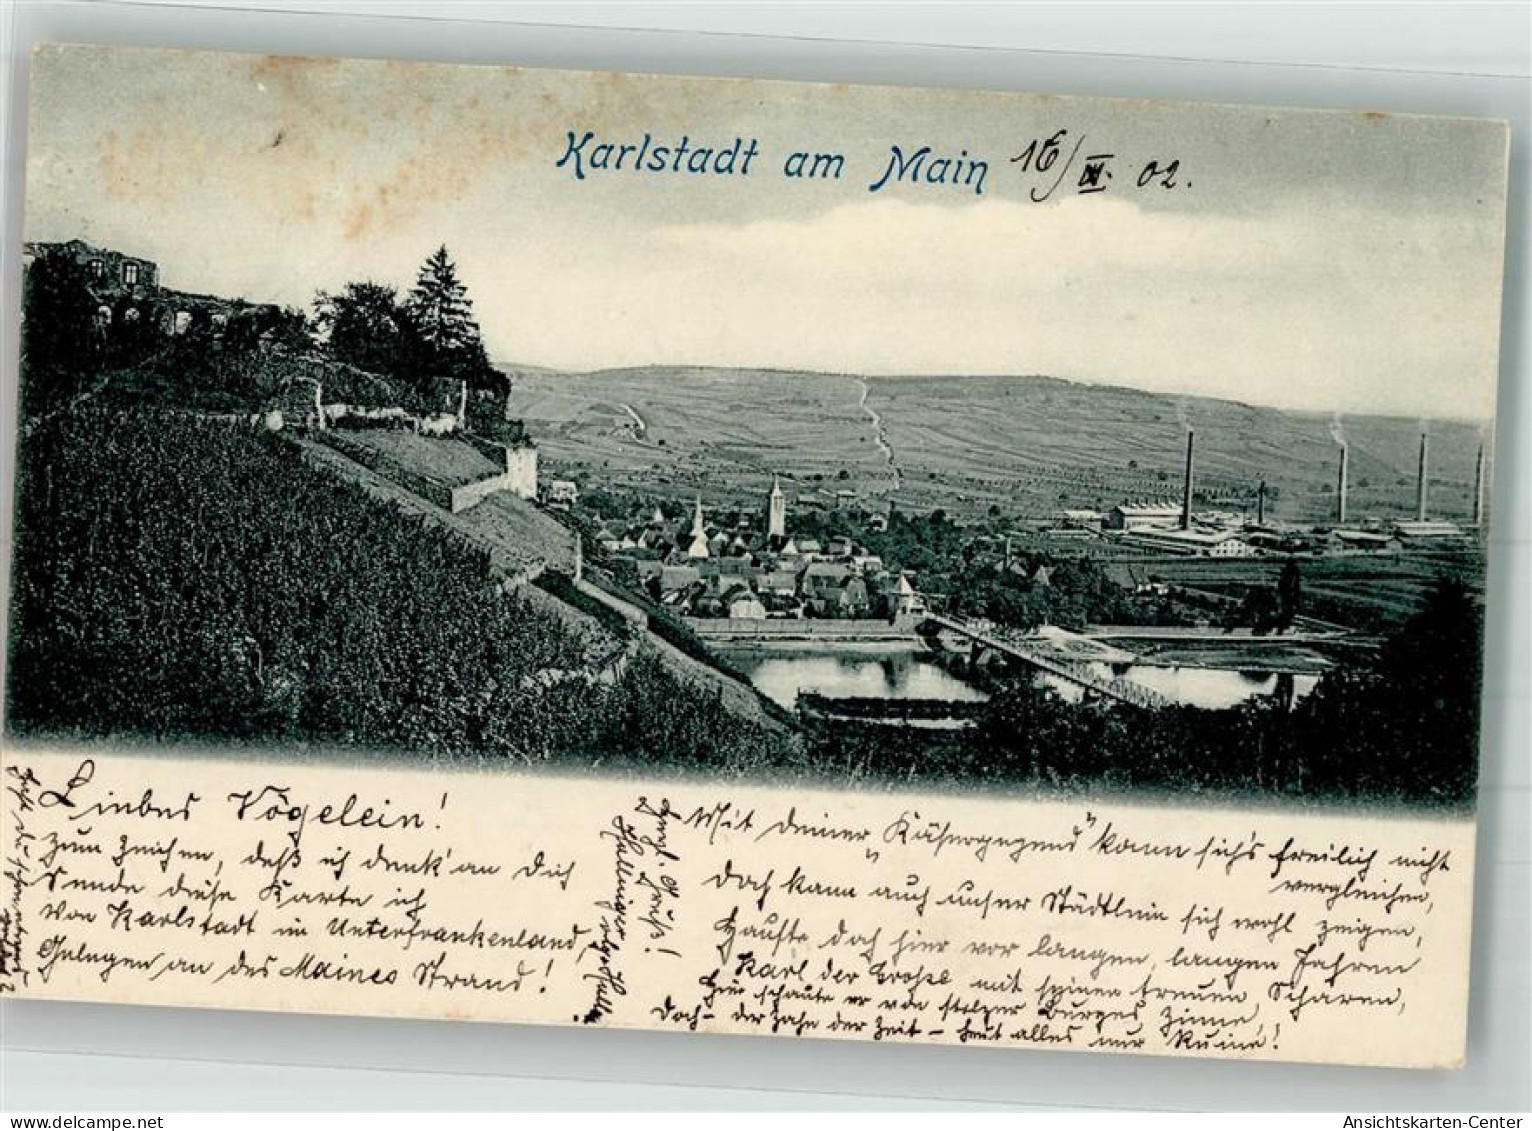 Karlstadt am Main
16/III. 02.
Liebes Vögelein!
Zum Zeichen, daß ich denk' an dich
Sende diese Karte ich
Von Karlstadt im Unterfrankenland,
Gelegen an des Maines Strand!
Herzl. Gruß!
Mit deiner „Käsegegend" kann sich's freilich nicht
vergleichen,
Doch kann auch unser Städtlein sich wohl zeigen,
Hauste doch hier vor langen, langen Jahren
Karl der Große mit seinen treuen Scharen,
Hier schaute er von stolzer Burges Zinne,
Doch – der Zahn der Zeit – heut alles nur Ruine!
delcampe.net
Ansichtskarten-Center